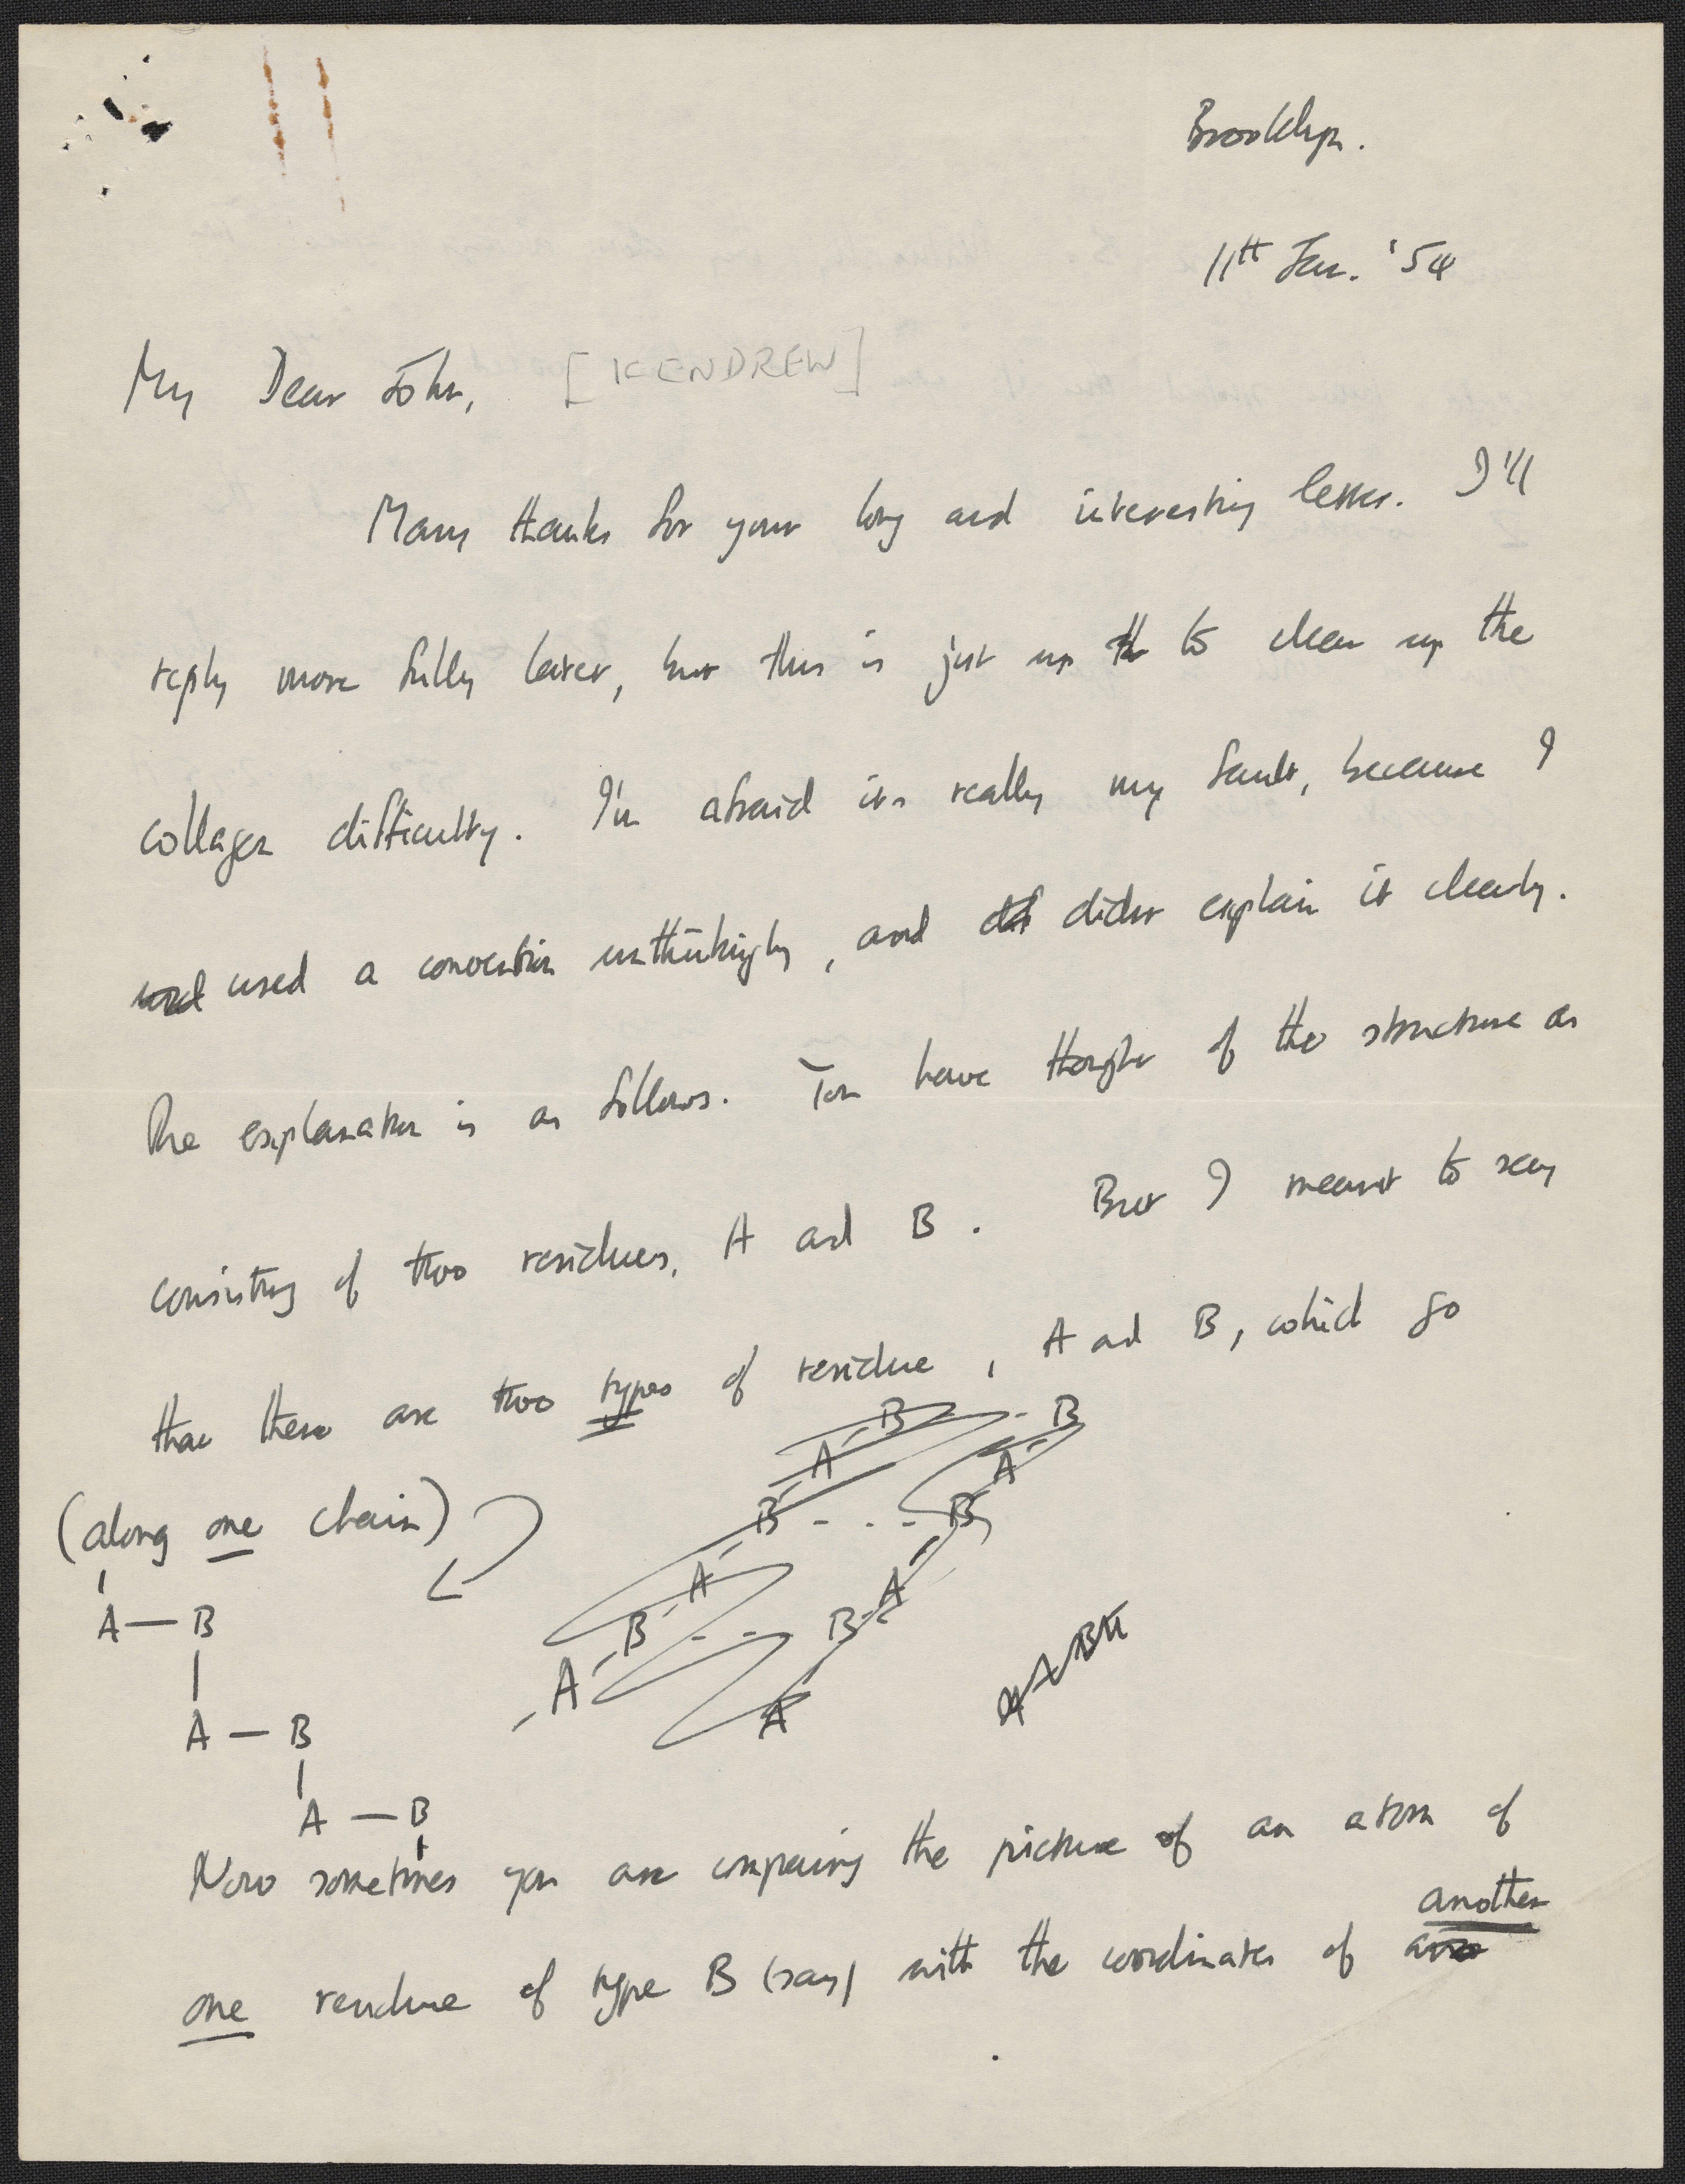 Brooklyn.
11th Jan. '54
My Dear John, [KENDREW]
Many thanks for your long and interesting letter. I'll
reply more fully later, but this is just up th to clear up the
collagen difficulty. I'm afraid its really my fault, because I
used a convention unthinkingly, and did didnt explain it clearly.
The explanation is as follows. You have thought of the structure as
consisting of two residues, A and B. But I meant to say
that there are two types of residue, A and B, which go
B B
A A
B - . . - B
(along one chain)
A A
A — B
B - . - B
A
A
A — B
A — B
Now sometimes you are comparing the picture of an atom of
another
one residue of type B (say) with the coordinates of